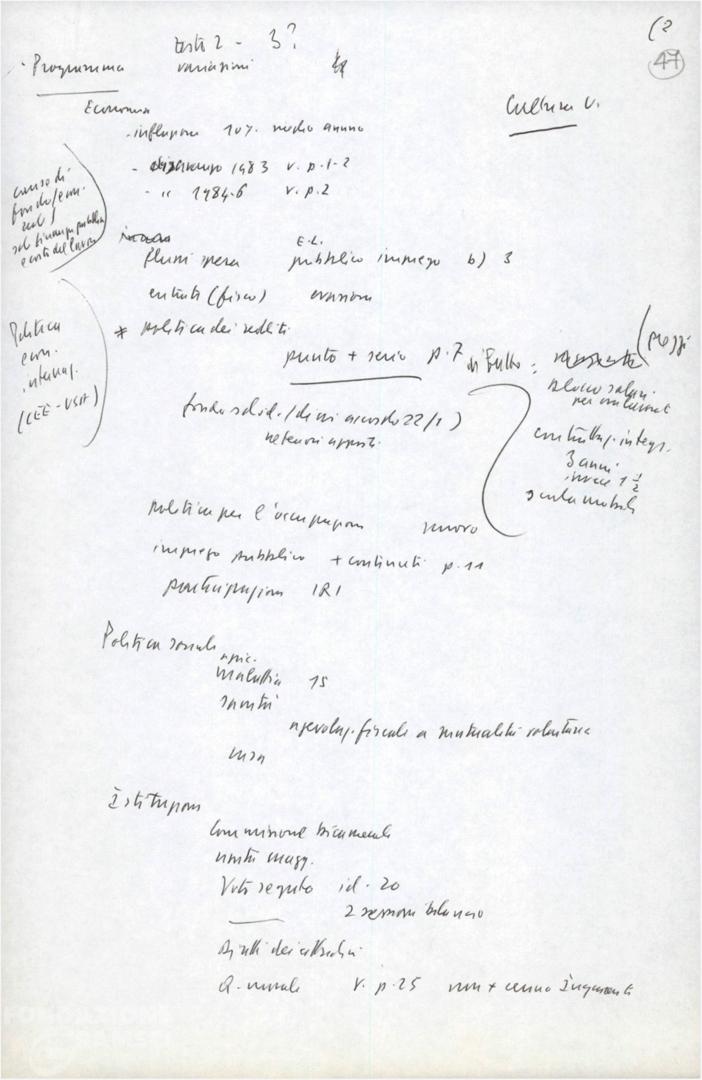 (2
47
testo 2 - 3?
Programma variazioni
Cultura v.
Economia
- inflazione 10% medio annuo
- disavanzo 1983 v. p. 1-2
- " 1984-6 v. p. 2
cause di
fondo/econ.
sol finanza pubblica
e costo del lavoro
E.L.
flussi spesa pubblico impiego b) 3
entrate (fisco) evasione
Politica
econ.
internaz.
(CEE-USA)
* politica dei redditi
punto + serio p. 7
prezzi
blocco salari
per
fondo solid. (di accordo 22/1)
contrattaz. integr.
3 anni
invece 1 1/2
scala mobile
politica per l'occupazione nuovo
impiego pubblico + continuità p. 11
partecipazioni IRI
Politica sociale
malattia 15
sanità
agevolaz. fiscale a mutualità volontaria
casa
Istituzioni
Commissione bicamerale
Voto segreto id. 20
2 sessioni bilancio
diritti dei cittadini
Q. morale v. p. 25 non + cenno Inquirente
FONDAZIONE